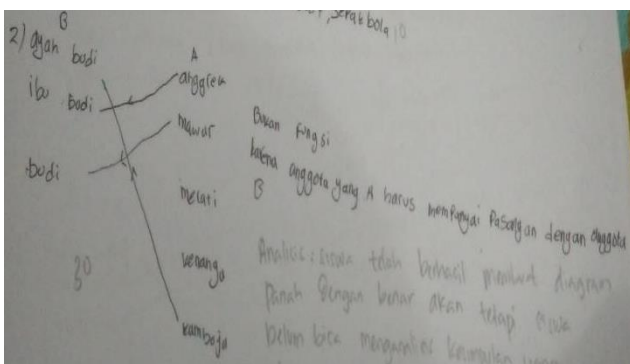 , serak bola, 0
2) B A
ayah budi anggrek
ibu budi mawar
budi melati
kenanga
kamboja
Bukan fungsi
karena anggota yang A harus mempunyai pasangan dengan anggota
B
30
Analisis : siswa telah berhasil membuat diagram
panah dengan benar akan tetapi siswa
belum bisa menganalisis